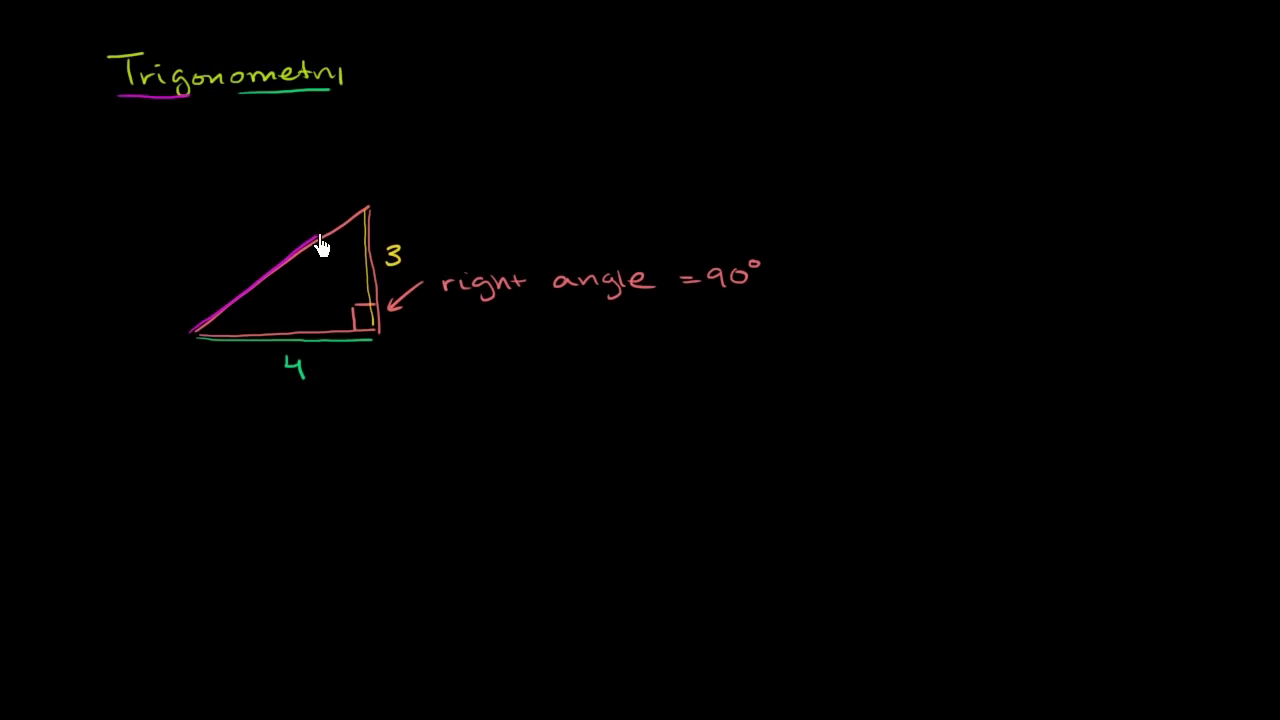 Trigonometry
3
right angle = 90°
4